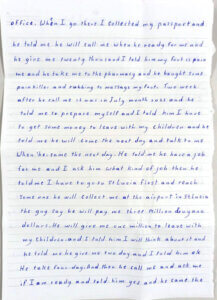 office. When I go there I collected my passport and
he told me he will call me when he ready for me and
he give me twenty thousand I told him my foot is pain
me and he take me to the pharmacy and he bought some
pain killer and rubbing to massage my foot. Two week
after he call me it was in July month 2005 and he
told me to prepare myself and I told him I have
to get some money to leave with my children and he
told me he will come the next day and talk to me
When he came the next day. He told me he have a job
for me and I ask him what kind of job then he
told me I have to go to St Lucia first and reach
Some one will collect me at the airport in St Lucia
the guy say he will pay me three Million Guyana
dollars. He will give me one million to leave with
my children and I told him I will think about it and
he told me he give me two day and I told him ok
He take four day. And then he call me and ask me
if I am ready and I told him yes and he came the